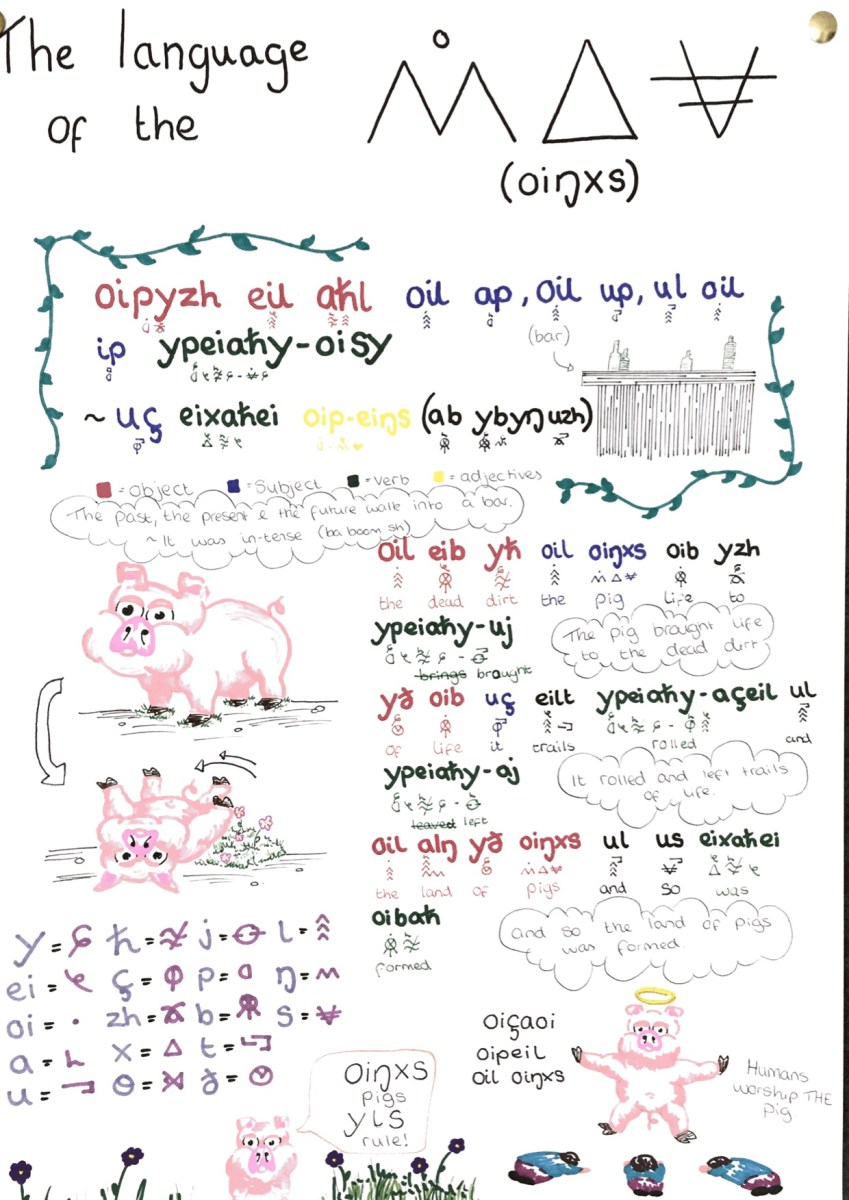 The language
of the
(oiŋxs)
oipyzh eil aħl oil ap, oil up, ul oil
ip ypeiaħy-oisy
(bar)
~ uç eixaħei oip-eiŋs (ab ybyŋ uzh)
= object = Subject = verb = adjectives
The past, the present & the future walk into a bar.
~ It was in-tense (ba boom sh)
oil eib yħ oil oiŋxs oib yzh
the dead dirt the pig life to
ypeiaħy-uj
brings brought
The pig brought life
to the dead dirt
yð oib uç eilt ypeiaħy-açeil ul
of life it trails rolled and
ypeiaħy-aj
leaved left
It rolled and left trails
of life.
oil alŋ yð oiŋxs ul us eixaħei
the land of pigs and so was
oibaħ
formed
and so the land of pigs
was formed
y = ħ = j = l =
ei = ç = p = ŋ =
oi = zh = b = s =
a = x = t =
u = θ = ð =
oiŋxs
pigs
yls
rule!
oiçaoi
oipeil
oil oiŋxs
Humans
worship THE
pig